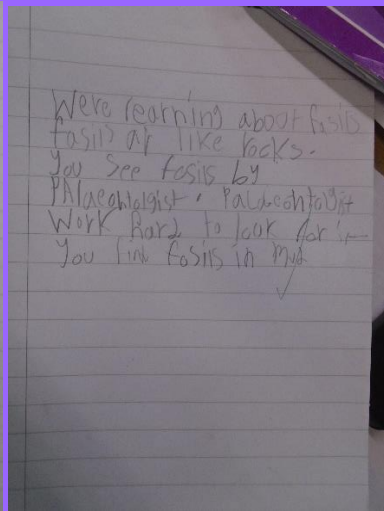 Were learning about fosils
fosils ar like rocks.
You see fosils by
PAlaeontolgist. Palaeontolgist
Work Hard to look for it
you find fosils in mud